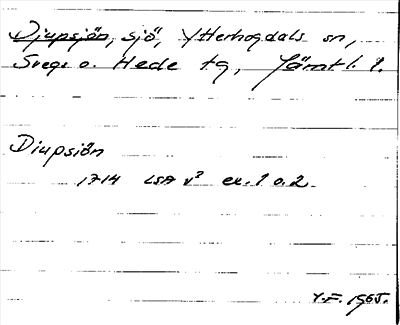 Djupsjön, sjö, Ytterhogdals sn,
Svegs o. Hede tg, Jämtl. l.
Diupsiön
1714 LSA v² ex. 1 o. 2.
Y.F. 1965.